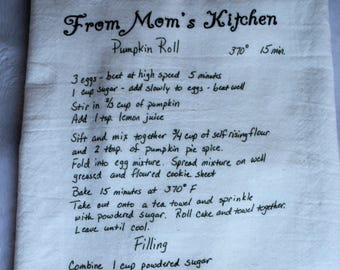 From Mom's Kitchen
Pumpkin Roll 370° 15 min.
3 eggs - beat at high speed 5 minutes
1 cup sugar - add slowly to eggs - beat well
Stir in ⅔ cup of pumpkin
Add 1 tsp. lemon juice
Sift and mix together ¾ cup of self rising flour
and 2 tbsp. of pumpkin pie spice.
Fold into egg mixture. Spread mixture on well
greased and floured cookie sheet
Bake 15 minutes at 370° F
Take out onto a tea towel and sprinkle
with powdered sugar. Roll cake and towel together.
Leave until cool.
Filling
Combine 1 cup powdered sugar